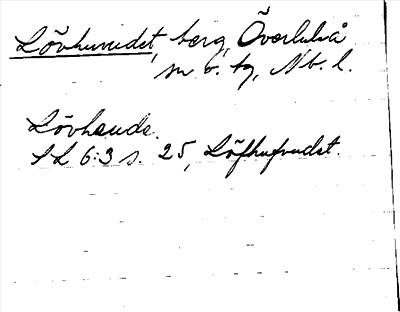 Lövhuvudet, berg, Överluleå
sn o. tg, Nb. l.
Lövhaude.
SL 6:3 s. 25, Löfhufvudet.